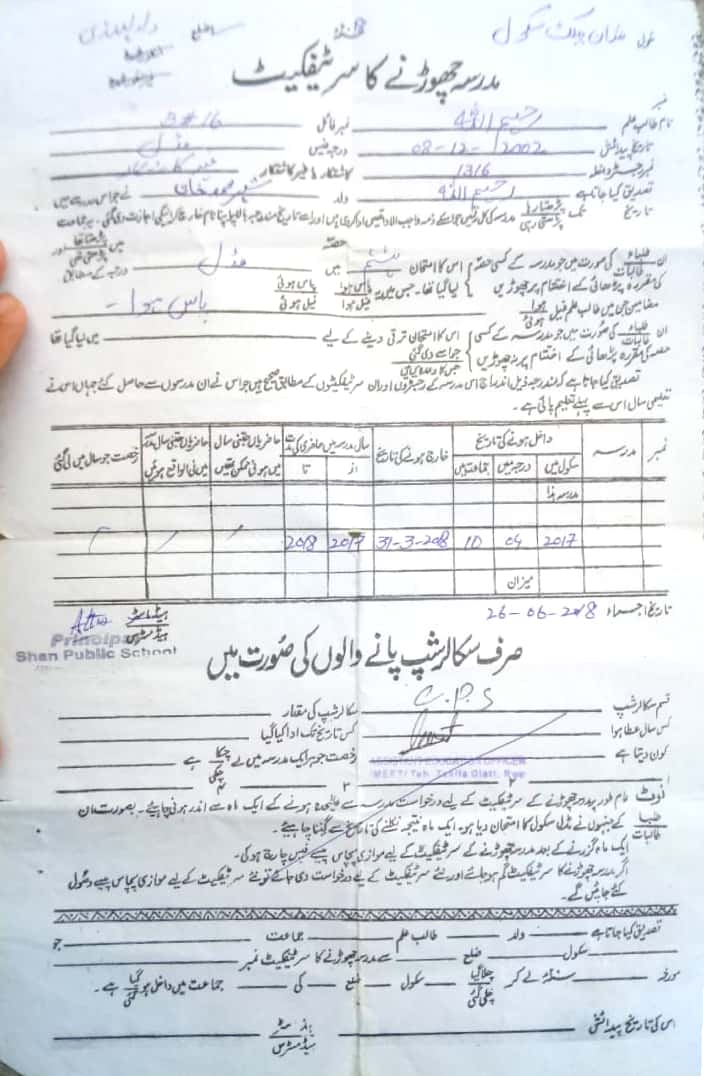 سکول شان پبلک سکول ضلع راولپنڈی
مدرسہ چھوڑنے کا سرٹیفکیٹ
نمبر
نام طالب علم رحیم اللہ نمبر فائل B#16
تاریخ پیدائش 08-12-2002 درجہ جنس مڈل
نمبر رجسٹر داخلہ 1316 کاشتکار یا غیر کاشتکار غیر کاشتکار
تصدیق کیا جاتا ہے رحیم اللہ ولد خان نے جو اس مدرسہ میں
تاریخ تک پڑھتا رہا / پڑھتی رہی مدرسہ کی کل رقمیں جو اس کے ذمہ واجب الادا تھیں ادا کر دی ہیں اور اسے تاریخ مندرجہ بالا پر اپنا نام خارج کرانے کی اجازت دی گئی۔ یہ جماعت
حصہ میں پڑھتا تھا / پڑھتی تھی اور
ان طلباء / طالبات کی صورت میں جو مدرسہ کے کسی حصہ اس کا امتحان ہشتم میں مڈل درجہ کے مطابق
کی مقررہ پڑھائی کے اختتام پر چھوڑیں لیا گیا تھا۔ جس میں یہ پاس ہوا / فیل ہوا پاس ہوئی / فیل ہوئی
مضامین جن میں طالب علم فیل ہوا / ہوئی پاس ہوا -
ان طلباء / طالبات کی صورت میں جو مدرسہ کے کسی اس کا امتحان ترقی دینے کے لیے میں لیا گیا تھا
حصہ کی مقررہ پڑھائی کے اختتام پر نہ چھوڑیں جو اسے دی گئی
تصدیق کیا جاتا ہے کہ مندرجہ ذیل اندراج اس مدرسہ کے رجسٹروں اور ان سرٹیفکیٹوں کے مطابق صحیح ہیں جو اس نے ان مدرسوں سے حاصل کئے جہاں اس نے
تعلیمی سال اس سے پہلے تعلیم پائی ہے۔
نمبر مدرسہ داخل ہونے کی تاریخ خارج ہونے کی تاریخ سال مدرسہ میں حاضری کی مدت حاضریاں جتنی سال میں ہونی ممکن تھیں حاضریاں جتنی سال میں فی الواقع ہوئیں رخصت جو سال میں لی گئی
سکول میں درجہ میں جماعت میں از تا
مدرسہ ہذا
2017 04 10 31-3-2018 2017 2018
میزان
تاریخ اجراء 26-06-2018
ہیڈ ماسٹر / ہیڈ مسٹرس
Principal
Shan Public School
صرف سکالرشپ پانے والوں کی صورت میں
قسم سکالرشپ سکالرشپ کی مقدار
C.P.S
کس سال عطا ہوا کس تاریخ تک ادا کیا گیا
کون دیتا ہے رخصت جو ہر ایک مدرسہ میں لے چکا / چکی ہے
ASSISTANT EDUCATION OFFICER
(MEET) Teh. Taxila Distt. Rwp
۲ ۳ ۴
نوٹ عام طور پر مدرسہ چھوڑنے کے سرٹیفکیٹ کے لیے درخواست مدرسہ سے علیحدہ ہونے کے ایک ماہ کے اندر ہونی چاہیے۔ بصورت ان
طلباء / طالبات کے جنہوں نے مڈل سکول کا امتحان دیا ہو۔ ایک ماہ نتیجہ نکلنے کی تاریخ سے گننا چاہیے۔
ایک ماہ گزرنے کے بعد مدرسہ چھوڑنے کے سرٹیفکیٹ کے لیے موازی پچاس پیسے فیس چارج ہو گی۔
اگر مدرسہ چھوڑنے کا سرٹیفکیٹ گم ہو جائے اور نئے سرٹیفکیٹ کے لیے درخواست دی جائے تو نئے سرٹیفکیٹ کے لیے موازی پچاس پیسے وصول
کئے جائیں گے۔
تصدیق کیا جاتا ہے ولد طالب علم جماعت جو
سکول ضلع سے مدرسہ چھوڑنے کا سرٹیفکیٹ نمبر
مورخہ سنہ لے کر چلا گیا / چلی گئی سکول ضلع کی جماعت میں داخل ہو گیا / گئی ہے۔
اس کی تاریخ پیدائش ہیڈ ماسٹر / ہیڈ مسٹرس